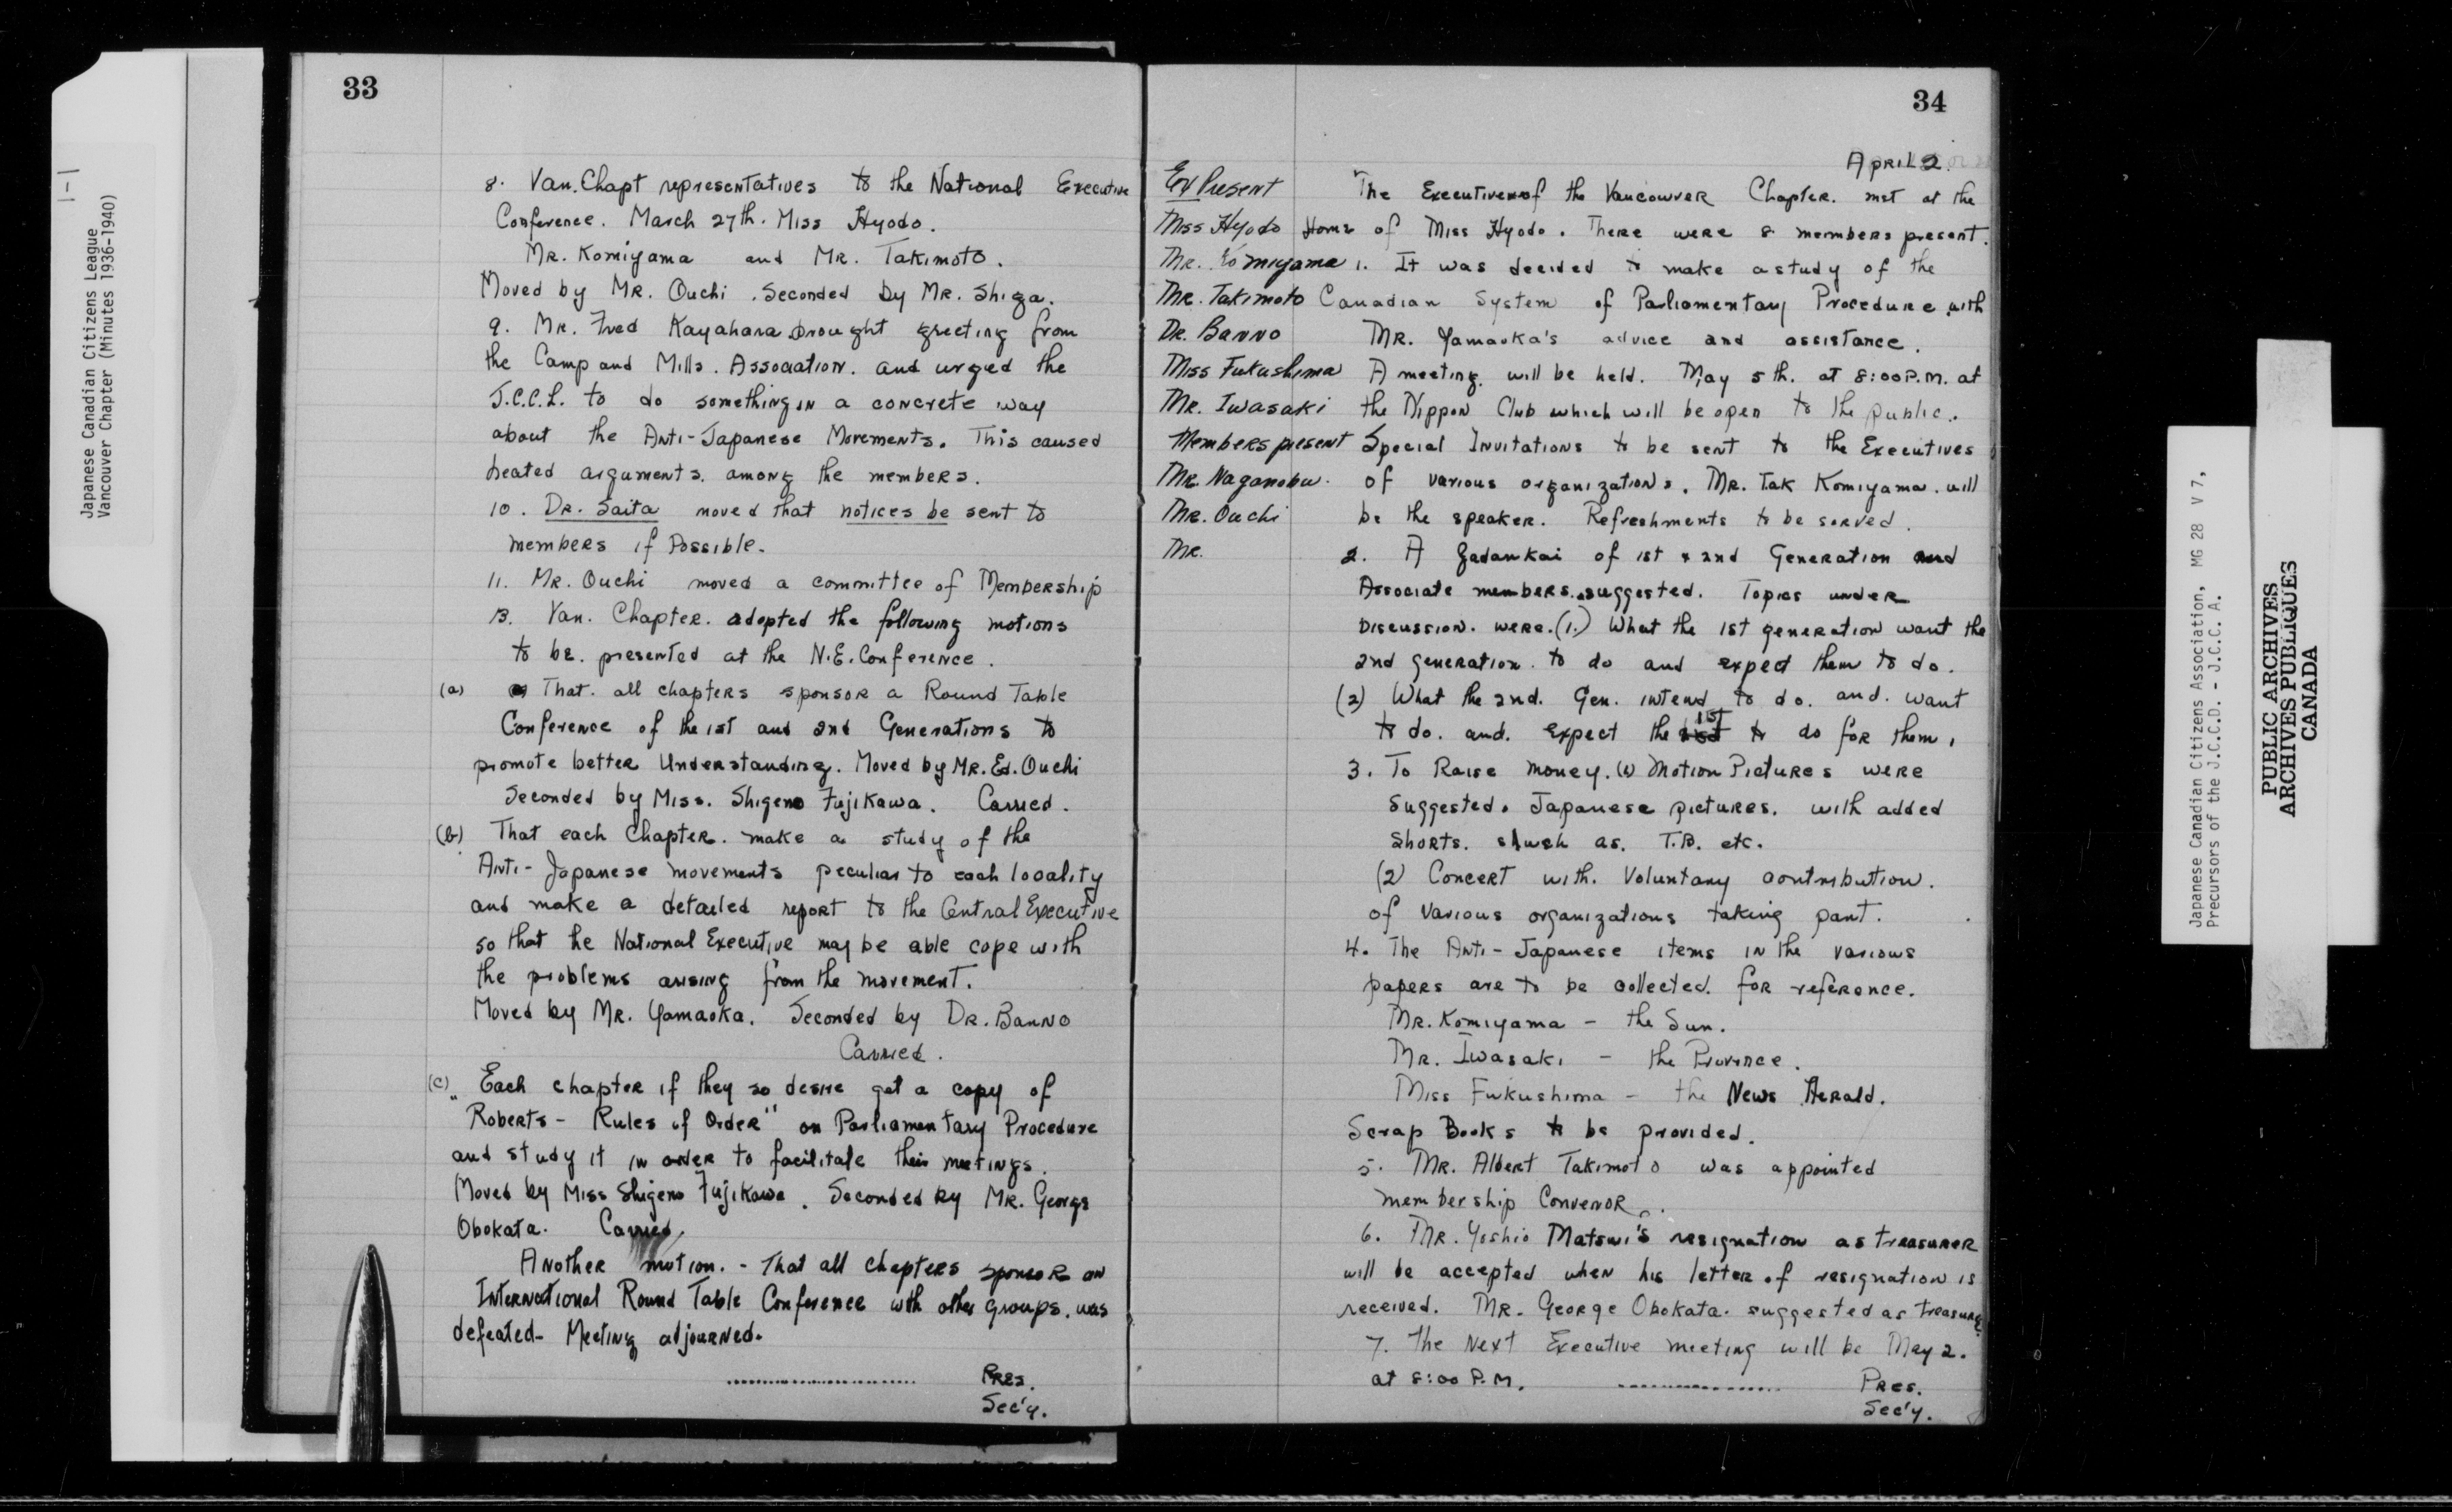 1-1
Japanese Canadian Citizens League
Vancouver Chapter (Minutes 1936-1940)
33
8. Van. Chapt representatives to the National Executive
Conference. March 27th. Miss Hyodo.
Mr. Komiyama and Mr. Takimoto.
Moved by Mr. Ouchi. Seconded by Mr. Shiga.
9. Mr. Fred Kayahara brought greeting from
the Camp and Mills. Association. and urged the
J.C.C.L. to do something in a concrete way
about the Anti-Japanese Movements. This caused
heated arguments. among the members.
10. Dr. Saita moved that notices be sent to
members if Possible.
11. Mr. Ouchi moved a committee of Membership
13. Van. Chapter. adopted the following motions
to be. presented at the N.E. Conference.
(a) That. all chapters sponsor a Round Table
Conference of the 1st and 2nd Generations to
promote better Understanding. Moved by Mr. Ed. Ouchi
Seconded by Miss. Shigeno Fujikawa. Carried.
(b) That each Chapter. make a study of the
Anti-Japanese movements peculiar to each locality
and make a detailed report to the Central Executive
so that he National Executive may be able cope with
the problems arising from the movement.
Moved by Mr. Yamaoka. Seconded by Dr. Banno
Carried.
(c) Each chapter if they so desire get a copy of
"Roberts - Rules of Order" on Parliamentary Procedure
and study it in order to facilitate their meetings.
Moved by Miss Shigeno Fujikawa. Seconded by Mr. George
Obokata. Carried.
Another motion. - That all chapters sponsor an
International Round Table Conference with other groups. was
defeated - Meeting adjourned.
........................ Pres.
Sec'y.
34
April 2.
Ex Present
Miss Hyodo
Mr. Komiyama
Mr. Takimoto
Dr. Banno
Miss Fukushima
Mr. Iwasaki
Members present
Mr. Naganobu.
Mr. Ouchi
Mr.
The Executive of the Vancouver Chapter. met at the
Home of Miss Hyodo. There were 8 members present.
1. It was decided to make a study of the
Canadian System of Parliamentary Procedure with
Mr. Yamaoka's advice and assistance.
A meeting. will be held. May 5th. at 8:00 P.M. at
the Nippon Club which will be open to the public.
Special Invitations to be sent to the Executives
of various organizations. Mr. Tak Komiyama. will
be the speaker. Refreshments to be served.
2. A Zadankai of 1st & 2nd Generation and
Associate members. suggested. Topics under
Discussion. were. (1.) What the 1st generation want the
2nd generation. to do and expect them to do.
(2) What the 2nd. Gen. intend to do. and. want
to do. and. expect the 1st to do for them.
3. To Raise money. (1) Motion Pictures were
suggested. Japanese pictures. with added
shorts. such as. T.B. etc.
(2) Concert with. Voluntary contribution.
of various organizations taking part.
4. The Anti-Japanese items in the various
papers are to be collected. for reference.
Mr. Komiyama - the Sun.
Mr. Iwasaki - the Province.
Miss Fukushima - the News Herald.
Scrap Books to be provided.
5. Mr. Albert Takimoto was appointed
membership Convenor.
6. Mr. Yoshio Matsui's resignation as treasurer
will be accepted when his letter of resignation is
received. Mr. George Obokata. suggested as treasure
7. The Next Executive meeting will be May 2.
at 8:00 P.M. .................. Pres.
Sec'y.
Japanese Canadian Citizens Association, MG 28 V 7,
Precursors of the J.C.C.D. - J.C.C.A.
PUBLIC ARCHIVES
ARCHIVES PUBLIQUES
CANADA